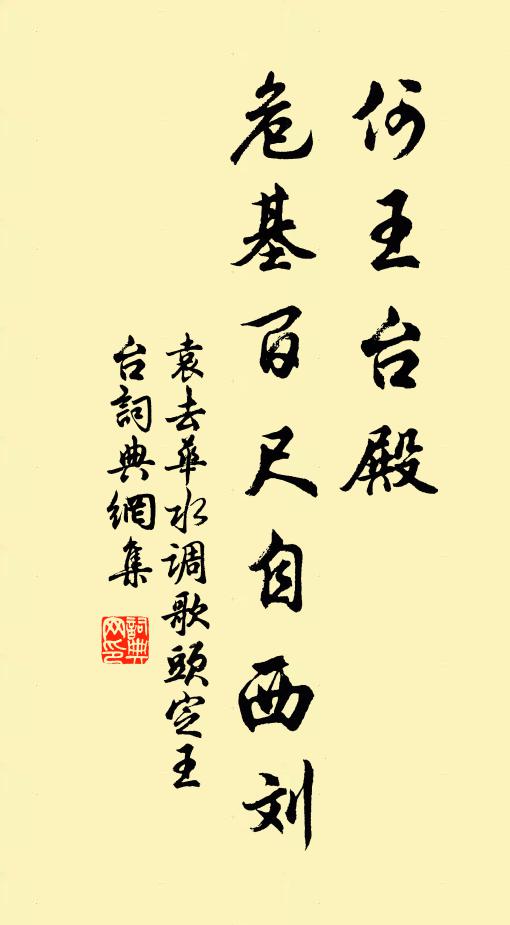 何王台殿
危基百尺自西刘
袁去華水调歌頭定王
台詞典網集
詞典网印